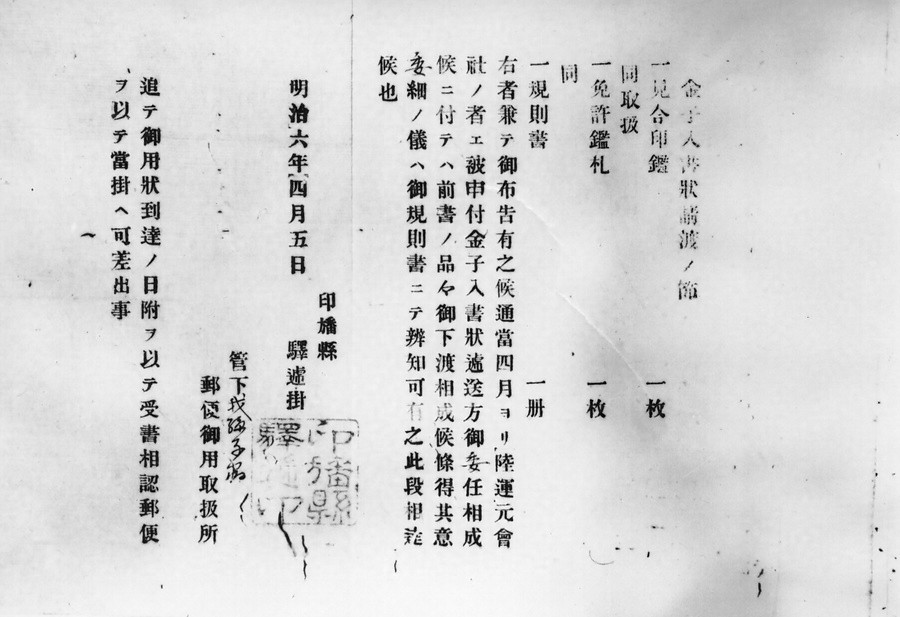 金子入書狀請渡ノ節
一見合印鑑　一枚
同取扱
一免許鑑札　一枚
同
一規則書　一册
右者兼テ御布告有之候通當四月ヨリ陸運元會
社ノ者エ被申付金子入書狀遞送方御委任相成
候ニ付テハ前書ノ品々御下渡相成候條得其意
委細ノ儀ハ御規則書ニテ辨知可有之此段相達
候也
明治六年四月五日
印旛縣
驛遞掛
管下我孫子宿
郵便御用取扱所
追テ御用狀到達ノ日附ヲ以テ受書相認郵便
ヲ以テ當掛ヘ可差出事